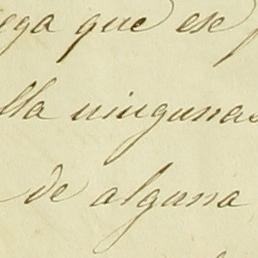 ega que ese
lla ningunas
de alguna